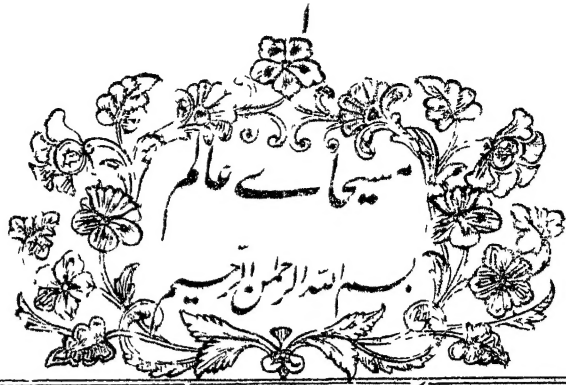 ۱
مسیحاے عالم
بسم اللہ الرحمٰن الرحیم